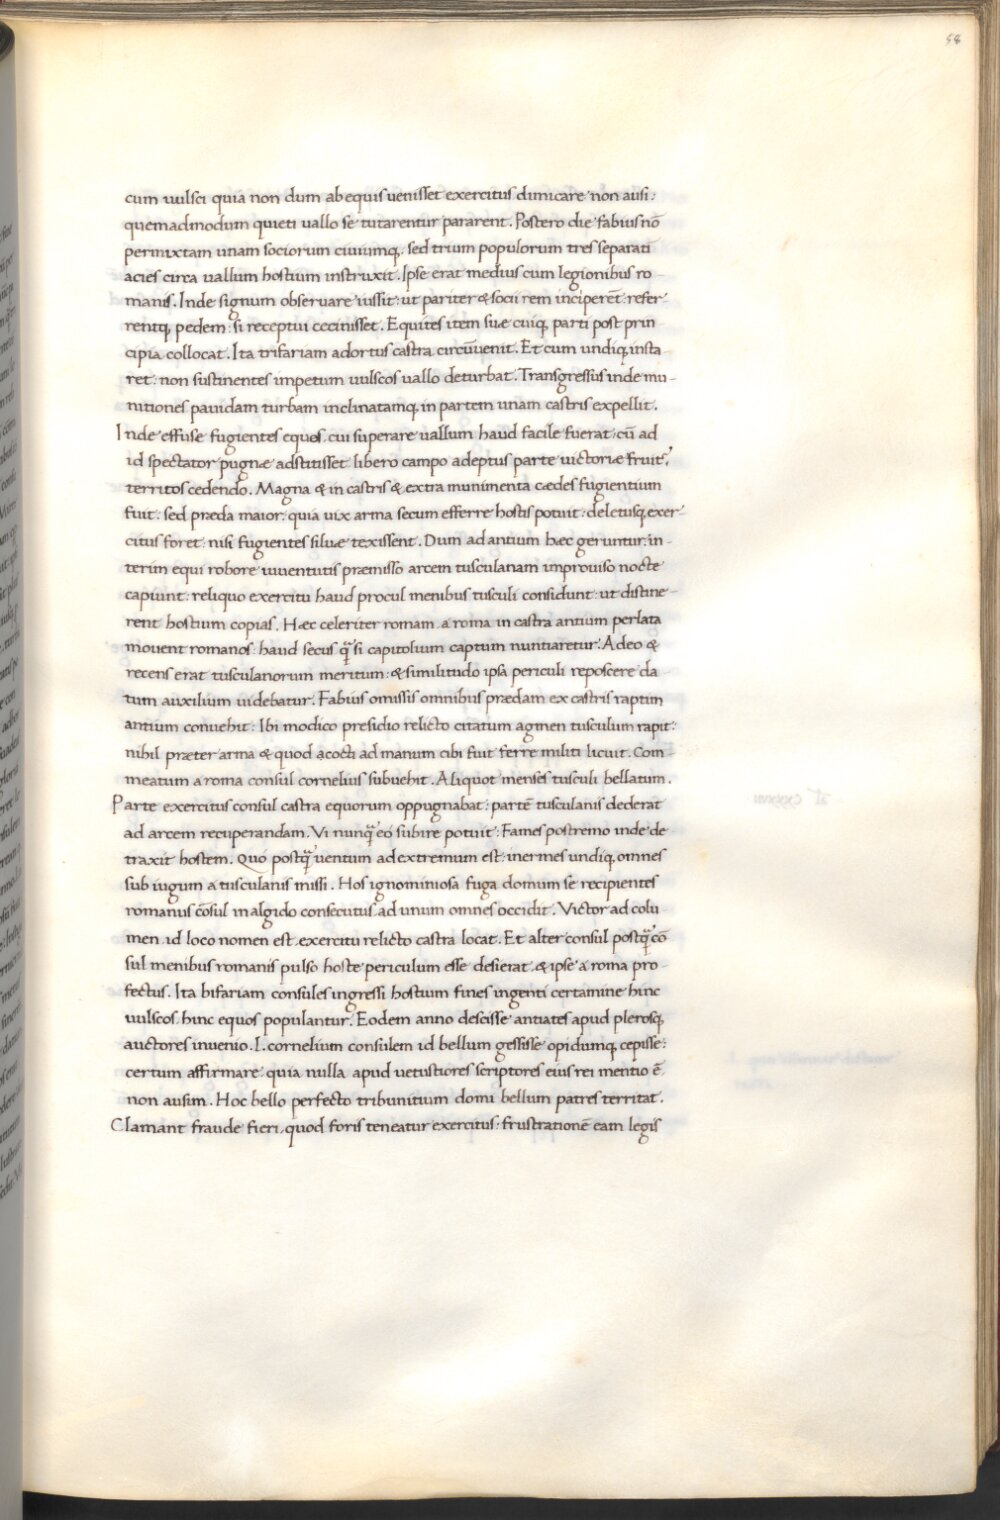 58
cum uulsci quia non dum ab equis uenisset exercitus dimicare non ausi:
quemadmodum quieti uallo se tutarentur pararent. Postero die fabius nō
permixtam unam sociorum ciuiumq; sed trium populorum tres separati
acies circa uallum hostium instruxit. Ipse erat medius cum legionibus ro
manis. Inde signum obseruare iussit: ut pariter & socii rem inciperēt: refer-
rentq; pedem: si receptui cecinisset. Equites item suæ cuiq; parti post prin
cipia collocat. Ita trifariam adortus castra circūuenit. Et cum undiq; insta
ret: non sustinentes impetum uulscos uallo deturbat. Transgressus inde mu-
nitiones pauidam turbam inclinatamq; in partem unam castris expellit.
Inde effuse fugientes eques, cui superare uallum haud facile fuerat, cū ad
id spectator pugnæ adstitisset libero campo adeptus parte uictoriæ fruit᷑,
territos cedendo. Magna & in castris & extra munimenta cædes fugientium
fuit: sed præda maior: quia uix arma secum efferre hostis potuit: deletusq; exer-
citus foret: nisi fugientes siluæ texissent. Dum ad antium hæc geruntur: in-
terim equi robore iuuentutis præmisso arcem tusculanam improuiso nocte
capiunt: reliquo exercitu haud procul menibus tusculi considunt: ut distine-
rent hostium copias. Hæc celeriter romam a roma in castra antium perlata
mouent romanos: haud secus q̃ si capitolium captum nuntiaretur. Adeo &
recens erat tusculanorum meritum: & similitudo ipsa periculi reposcere da
tum auxilium uidebatur. Fabius omissis omnibus prædam ex castris raptim
antium conuehit: Ibi modico presidio relicto citatum agmen tusculum rapit:
nihil præter arma & quod a cocti ad manum cibi fuit ferre militi licuit. Com
meatum a roma consul cornelius subuehit. Aliquot menses tusculi bellatum.
Parte exercitus consul castra equorum oppugnabat: partē tusculanis dederat
ad arcem recuperandam. Vi nunq̃ eo subire potuit: Fames postremo inde de
traxit hostem. Quo postq̃ uentum ad extremum est: inermes undiq; omnes
sub iugum a tusculanis missi. Hos ignominiosa fuga domum se recipientes
romanus cōsul in algido consecutus ad unum omnes occidit. Victor ad colu
men id loco nomen est, exercitu relicto castra locat. Et alter consul postq̃ cō
sul menibus romanis pulso hoste periculum esse desierat, & ipse a roma pro
fectus. Ita bifariam consules ingressi hostium fines ingenti certamine hinc
uulscos, hinc equos populantur. Eodem anno descisse antiates apud plerosq;
auctores inuenio. L. cornelium consulem id bellum gessisse opidumq; cepisse:
certum affirmare: quia nulla apud uetustiores scriptores eius rei mentio ē
non ausim. Hoc bello perfecto tribunitium domi bellum patres territat.
Clamant fraude fieri, quod foris teneatur exercitus: frustrationē eam legis